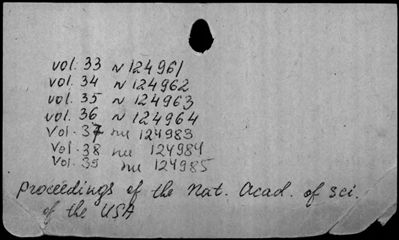 vol. 33 N 124961
vol. 34 N 124962
vol. 35 N 124963
vol. 36 N 124964
Vol. 37 nu 124983
Vol. 38 nu 124984
Vol. 39 nu 124985
Proceedings of the Nat. Acad. of sci.
of the USA